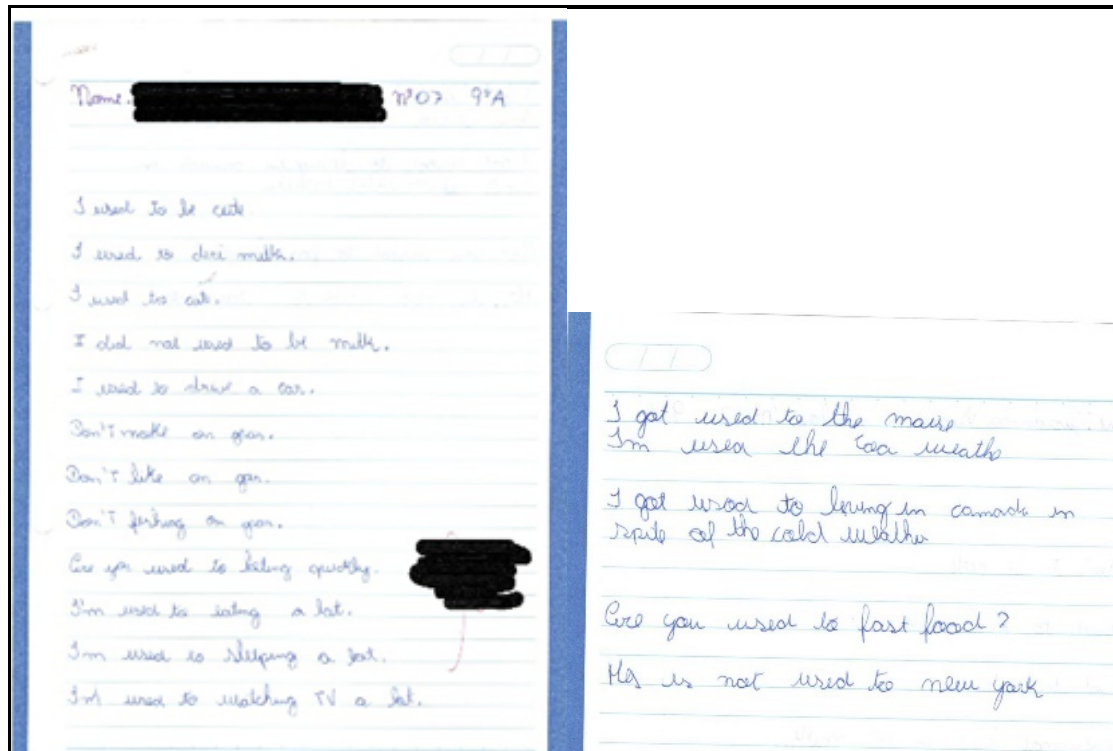 Name. nº07 9ºA
I used to be cute
I used to milk.
I used to
I did not used to be milk.
I used to drive a car.
Don't make on gon.
Don't like on gon.
Don't on gon.
Are you used to quickly.
I'm used to eating a lot.
I'm used to sleeping a lot.
I'm used to watching TV a lot.
I got used to the
I'm used the
I got used to in canada in
spite of the cold weather
Are you used to fast food?
is not used to new york